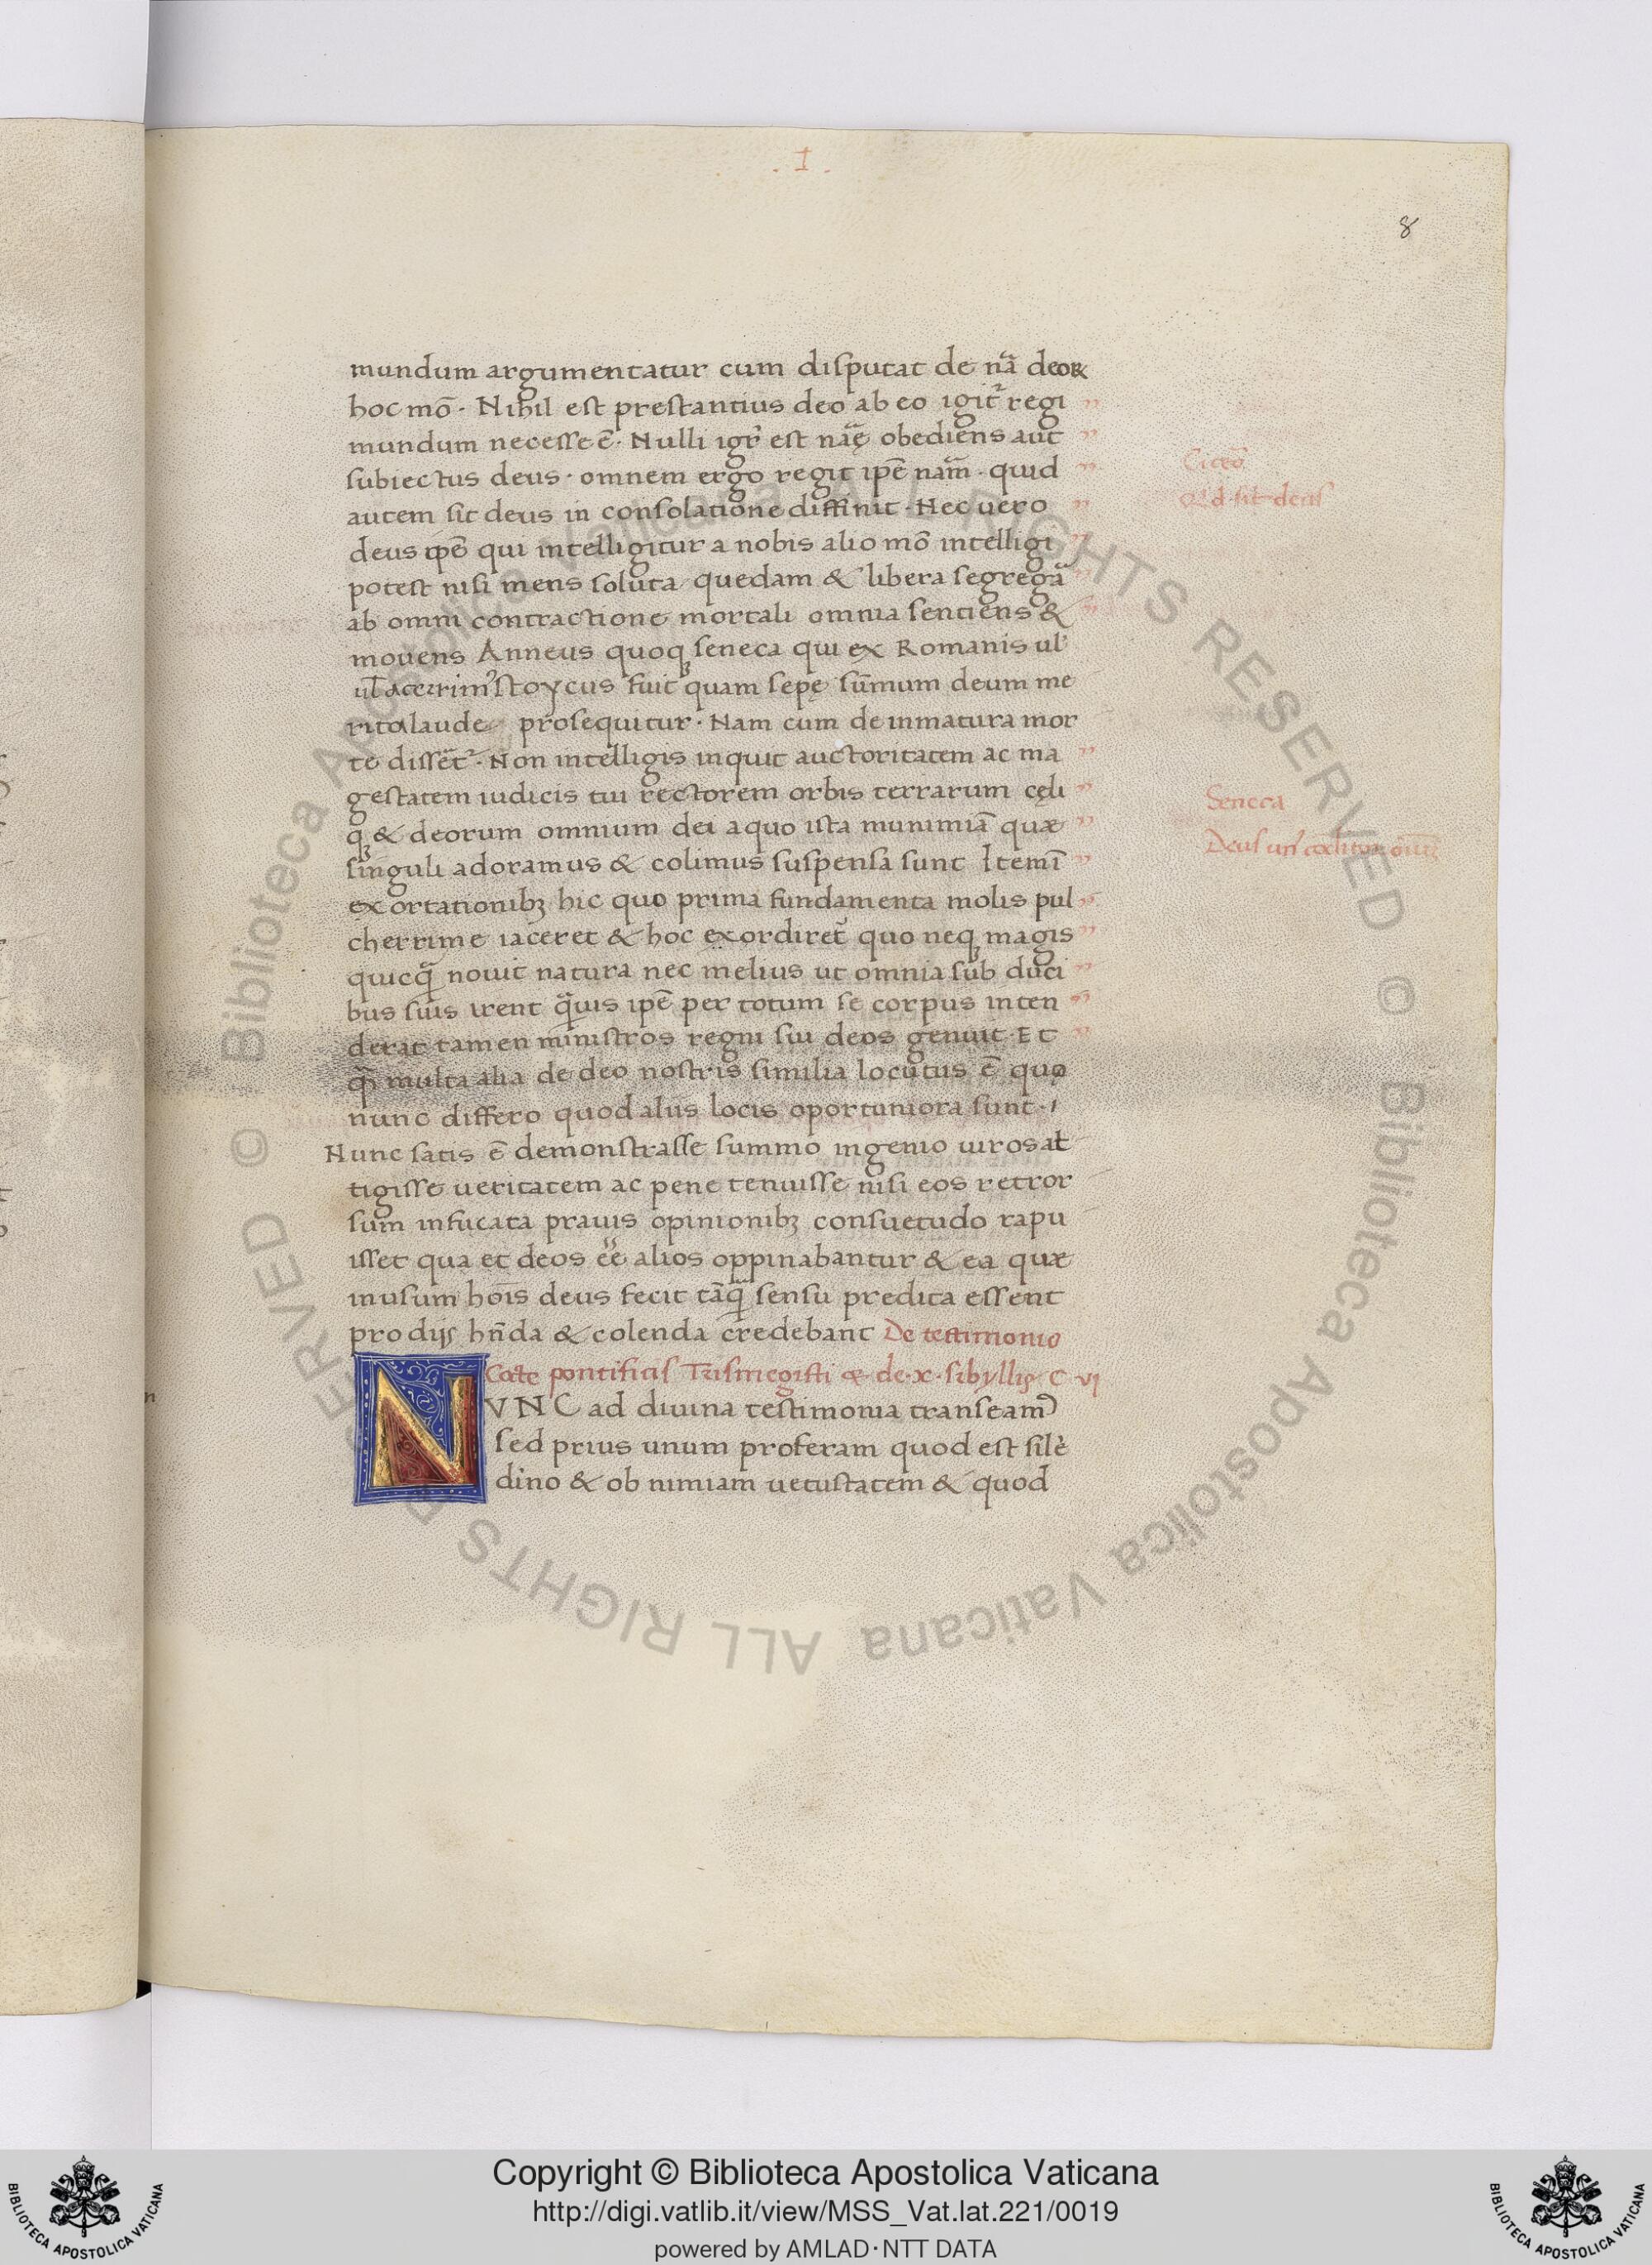 . I .
8
mundum argumentatur cum disputat de nãa deoꝝ
hoc mõ · Nihil est prestantius deo ab eo igit᷑ regi
mundum necesse ẽ · Nulli igr̃ est nãę obediens aut
subiectus deus · omnem ergo regit ipẽ nãm · quid
autem sit deus in consolatione diffinit · Nec vero
deus ipẽ qui intelligitur a nobis alio mõ intelligi
potest nisi mens soluta quedam & libera segregã
ab omni contractione mortali omnia sentiens &
mouens Anneus quoqꝫ seneca qui ex Romanis ul᷑
ul̃ acerrimꝰ stoycus fuit quam sepę sũmum deum me
rita laude prosequitur · Nam cum de inmatura mor
te disset᷑ · Non intelligis inquit auctoritatem ac ma
gestatem iudicis tui rectorem orbis terrarum cęli
qꝫ & deorum omnium dei a quo ista munimiã quæ
singuli adoramus & colimus suspensa sunt Itemĩ
exortationibꝫ hic quo prima fundamenta molis pul
cherrime iaceret & hoc exordiret᷑ quo neqꝫ magis
quicq̃ nouit natura nec melius ut omnia sub duci
bus suis irent q̃uis ipẽ per totum se corpus inten
derat tamen ministros regni sui deos genuit · Et
q̃ multa alia de deo nostris similia locutus ẽ quo
nunc differo quod aliis locis oportuniora sunt ·
Nunc satis ẽ demonstrasse summo ingenio uiros at
tigisse ueritatem ac pene tenuisse nisi eos retror
sum infucata prauis opinionibꝫ consuetudo rapu
isset qua et deos eẽ alios oppinabantur & ea quæ
inusum hoĩs deus fecit tãq̃ sensu predita essent
pro dijs hñda & colenda credebant De testimonio
Cate pontificis Trismegisti & de · x · sibyllis C VI
NVNC ad diuina testimonia transeamꝰ
sed prius unum proferam quod est silẽ
diuino & ob nimiam uetustatem & quod
Cicerõ
Qd sit deus
Seneca
Deus
Copyright © Biblioteca Apostolica Vaticana
http://digi.vatlib.it/view/MSS_Vat.lat.221/0019
powered by AMLAD · NTT DATA
BIBLIOTECA APOSTOLICA VATICANA
BIBLIOTECA APOSTOLICA VATICANA
© Biblioteca Apostolica Vaticana ALL RIGHTS RESERVED © Biblioteca Apostolica Vaticana ALL RIGHTS RESERVED